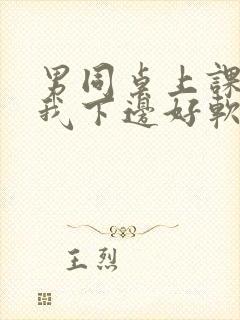 男同桌上課
我下邊好軟
王烈